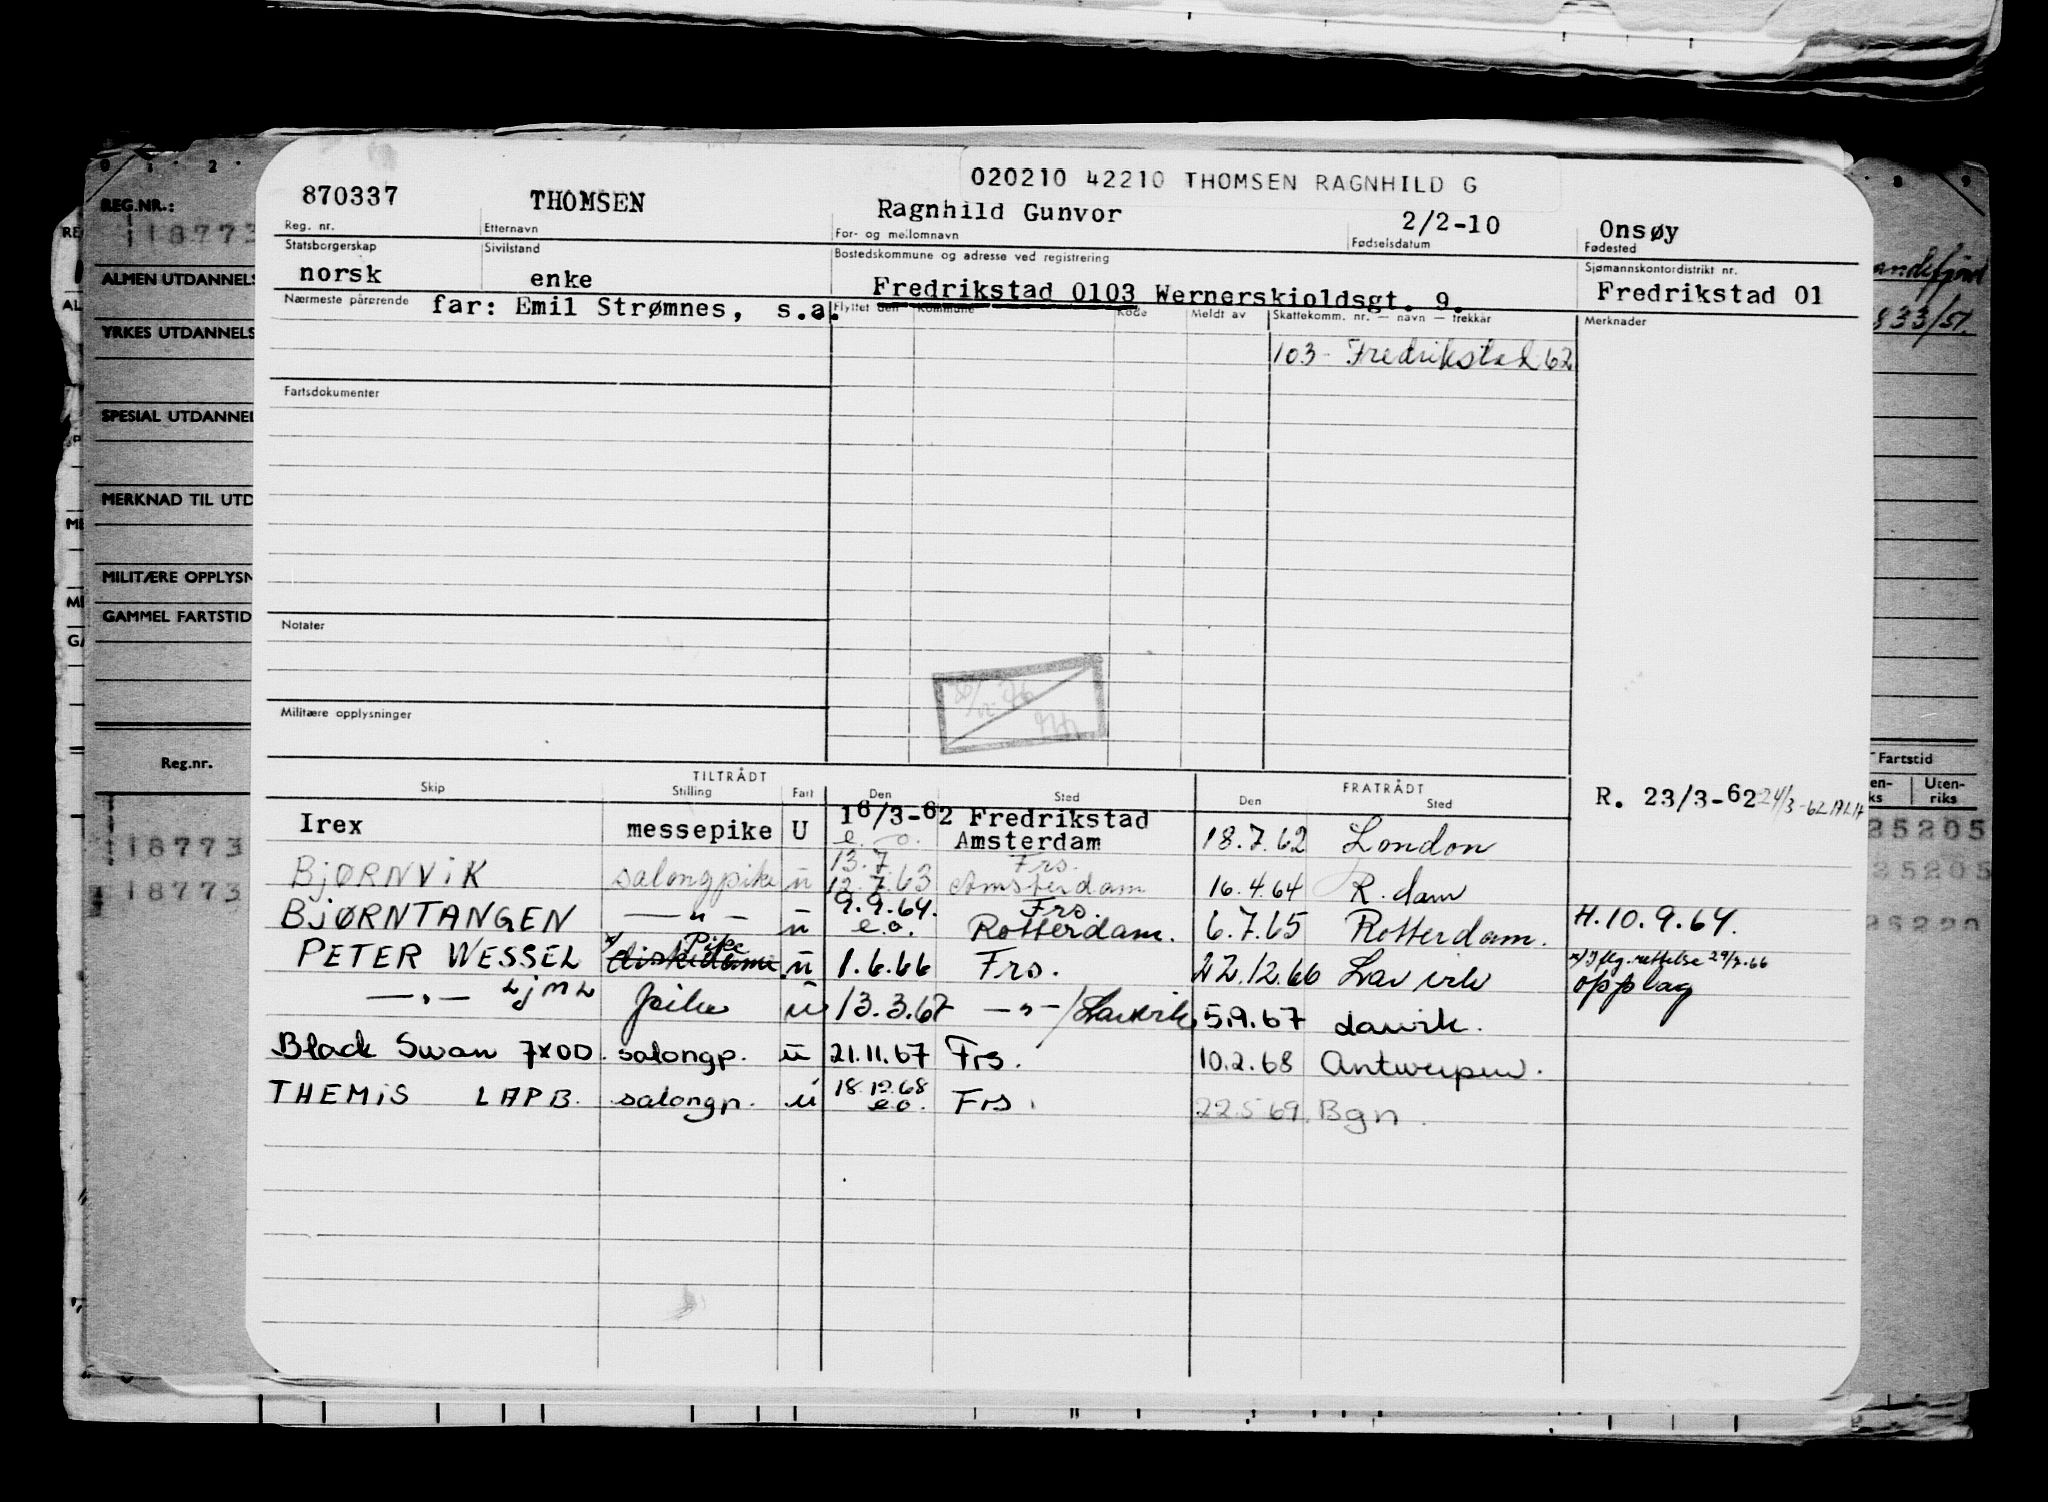 020210 42210 THOMSEN RAGNHILD G
870337 THOMSEN Ragnhild Gunvor 2/2-10 Onsøy
Reg. nr. Etternavn For- og mellomnavn Fødselsdatum Fødested
Statsborgerskap Sivilstand Bostedskommune og adresse ved registrering Sjømannskontordistrikt nr.
norsk enke Fredrikstad 0103 Wernerskioldsgt. 9. Fredrikstad 01
Nærmeste pårørende far: Emil Strømnes, s.a. Flyttet den Kommune Kode Meldt av Skattekomm. nr. — navn — trekkår Merknader
103 - Fredrikstad 62
Fartsdokumenter
Notater
Militære opplysninger
TILTRÅDT FRATRÅDT
Skip Stilling Fart Den Sted Den Sted
R. 23/3-62 24/3-62
Irex messepike U 16/3-62 Fredrikstad
e. o. Amsterdam 18.7.62 London
13.7. Frs.
BJØRNVIK salongpike u 12.7.63 Amsterdam 16.4.64 R.dam
9.9.64. Frs.
BJØRNTANGEN — " — u e.o. Rotterdam. 6.7.65 Rotterdam. H.10.9.64.
Pike
PETER WESSEL x/ u 1.6.66 Frs. 22.12.66 Larvik x/ Iflg. rettelse 29/7.66
opplag
— " — LJML pike u 13.3.67 — " — / Larvik 5.9.67 Larvik.
Black Swan 7XOD. salongp. u 21.11.67 Frs. 10.2.68 Antwerpen.
THEMIS LAPB. salongp. u 18.12.68 e.o. Frs. 22.5.69. Bgn.
REG.NR.:
18773
ALMEN UTDANNELS
YRKES UTDANNELS
SPESIAL UTDANNEL
MERKNAD TIL UTD
MILITÆRE OPPLYSN
GAMMEL FARTSTID
Reg.nr.
18773
18773
andefjord
833/51.
Fartstid
Uten-
riks
35205
35205
35220